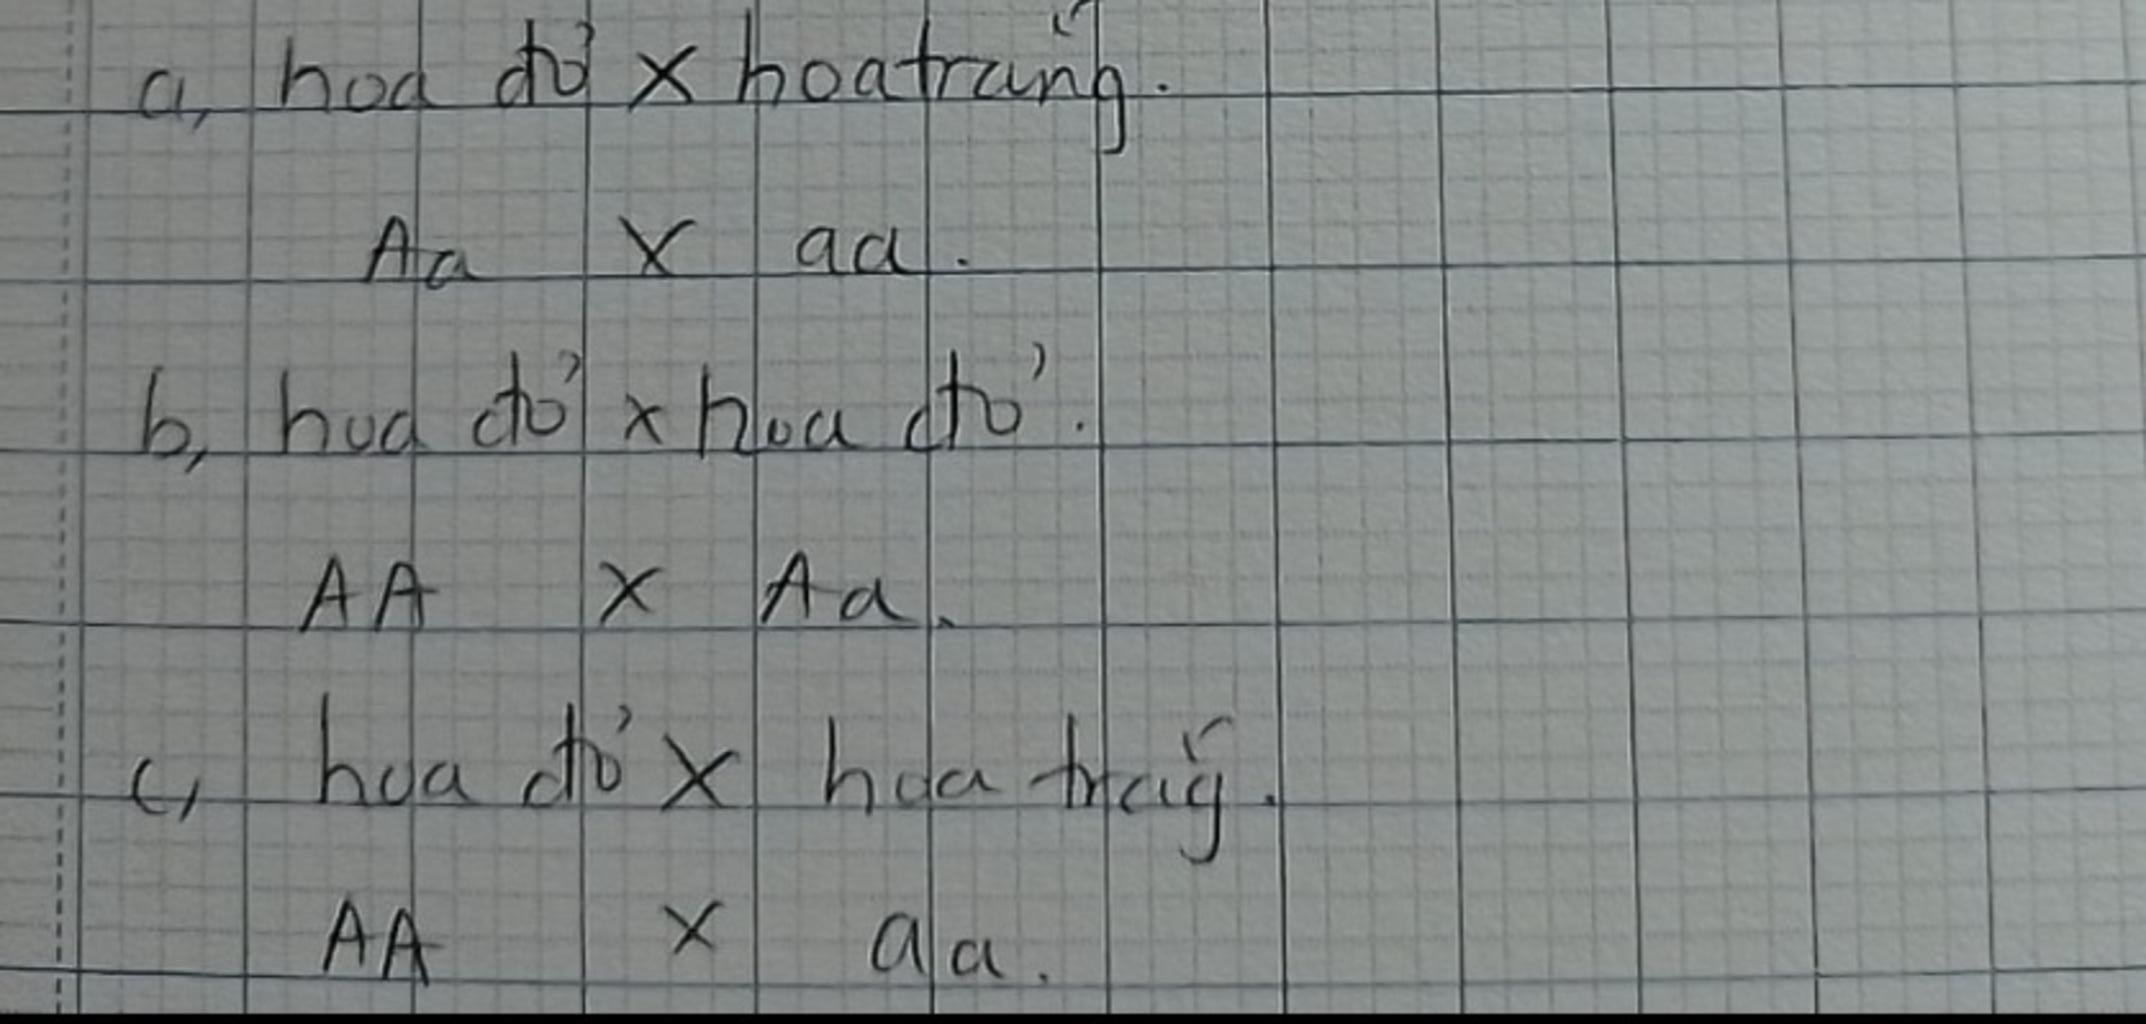 a, hoa đỏ x hoa trắng.
Aa x aa.
b, hoa đỏ x hoa đỏ.
AA x Aa.
c, hoa đỏ x hoa trắng.
AA x aa.